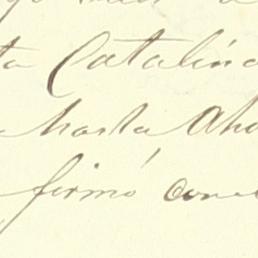 ta Catalina
hasta Aho
firmó con